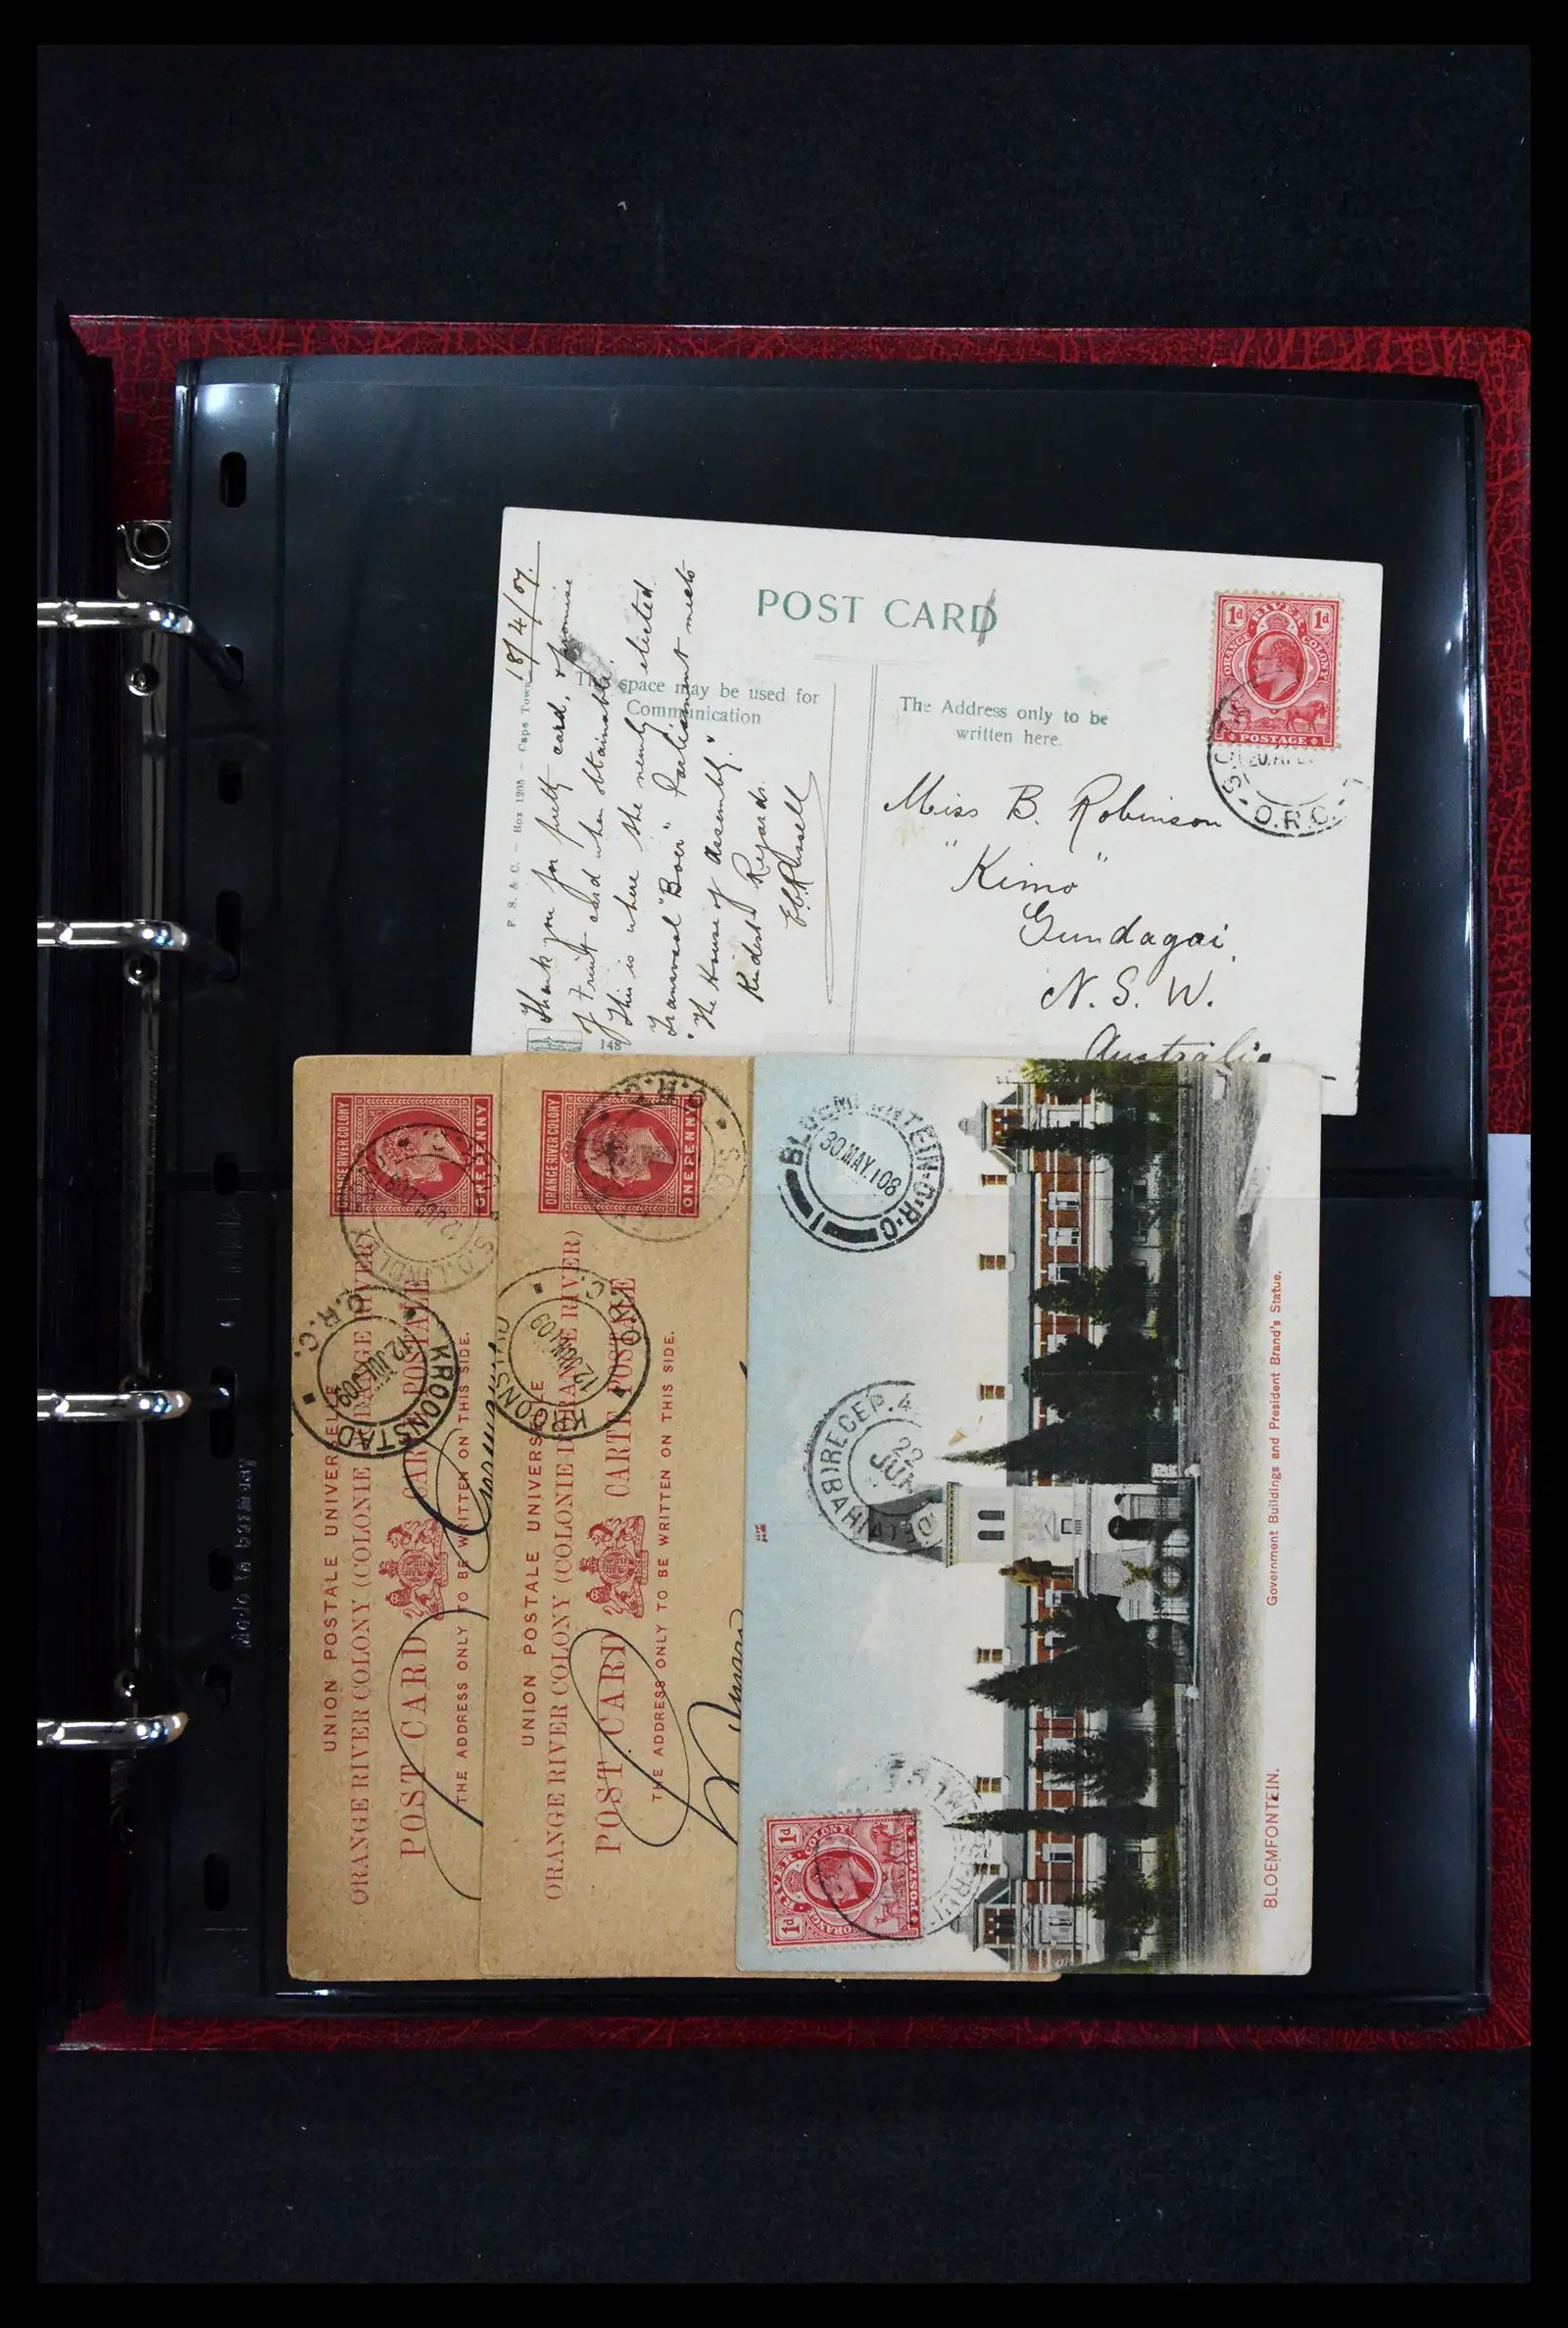 POST CARD
This space may be used for
Communication
The Address only to be
written here.
P. S. & C. — Box 1205 — Cape Town
148
18/4/07.
Thank you for pretty card, & promise
of Fruit card when obtainable.
This is where the newly elected
Transvaal "Boer" Parliament meets
"The House of Assembly."
Kindest Regards.
Russell
Miss B. Robinson
"Kimo"
Gundagai
N. S. W.
Australia
1d 1d
ORANGE RIVER COLONY
POSTAGE
O.R.C.
ORANGE RIVER COLONY
ONE PENNY
UNION POSTALE UNIVERSELLE
ORANGE RIVER COLONY (COLONIE D'ORANGE RIVER)
POST CARD CARTE POSTALE
THE ADDRESS ONLY TO BE WRITTEN ON THIS SIDE.
KROONSTAD
O.R.C.
12 JUN 09
Germany
ORANGE RIVER COLONY
ONE PENNY
O.R.C.
UNION POSTALE UNIVERSELLE
ORANGE RIVER COLONY (COLONIE D'ORANGE RIVER)
POST CARD CARTE POSTALE
THE ADDRESS ONLY TO BE WRITTEN ON THIS SIDE.
KROONSTAD
O.R.C.
12 JUN 09
BLOEMFONTEIN·O·R·C
30.MAY.08
1
22
JUN
1d 1d
ORANGE RIVER COLONY
POSTAGE
BLOEMFONTEIN.
Government Buildings and President Brand's Statue.
Made in Germany